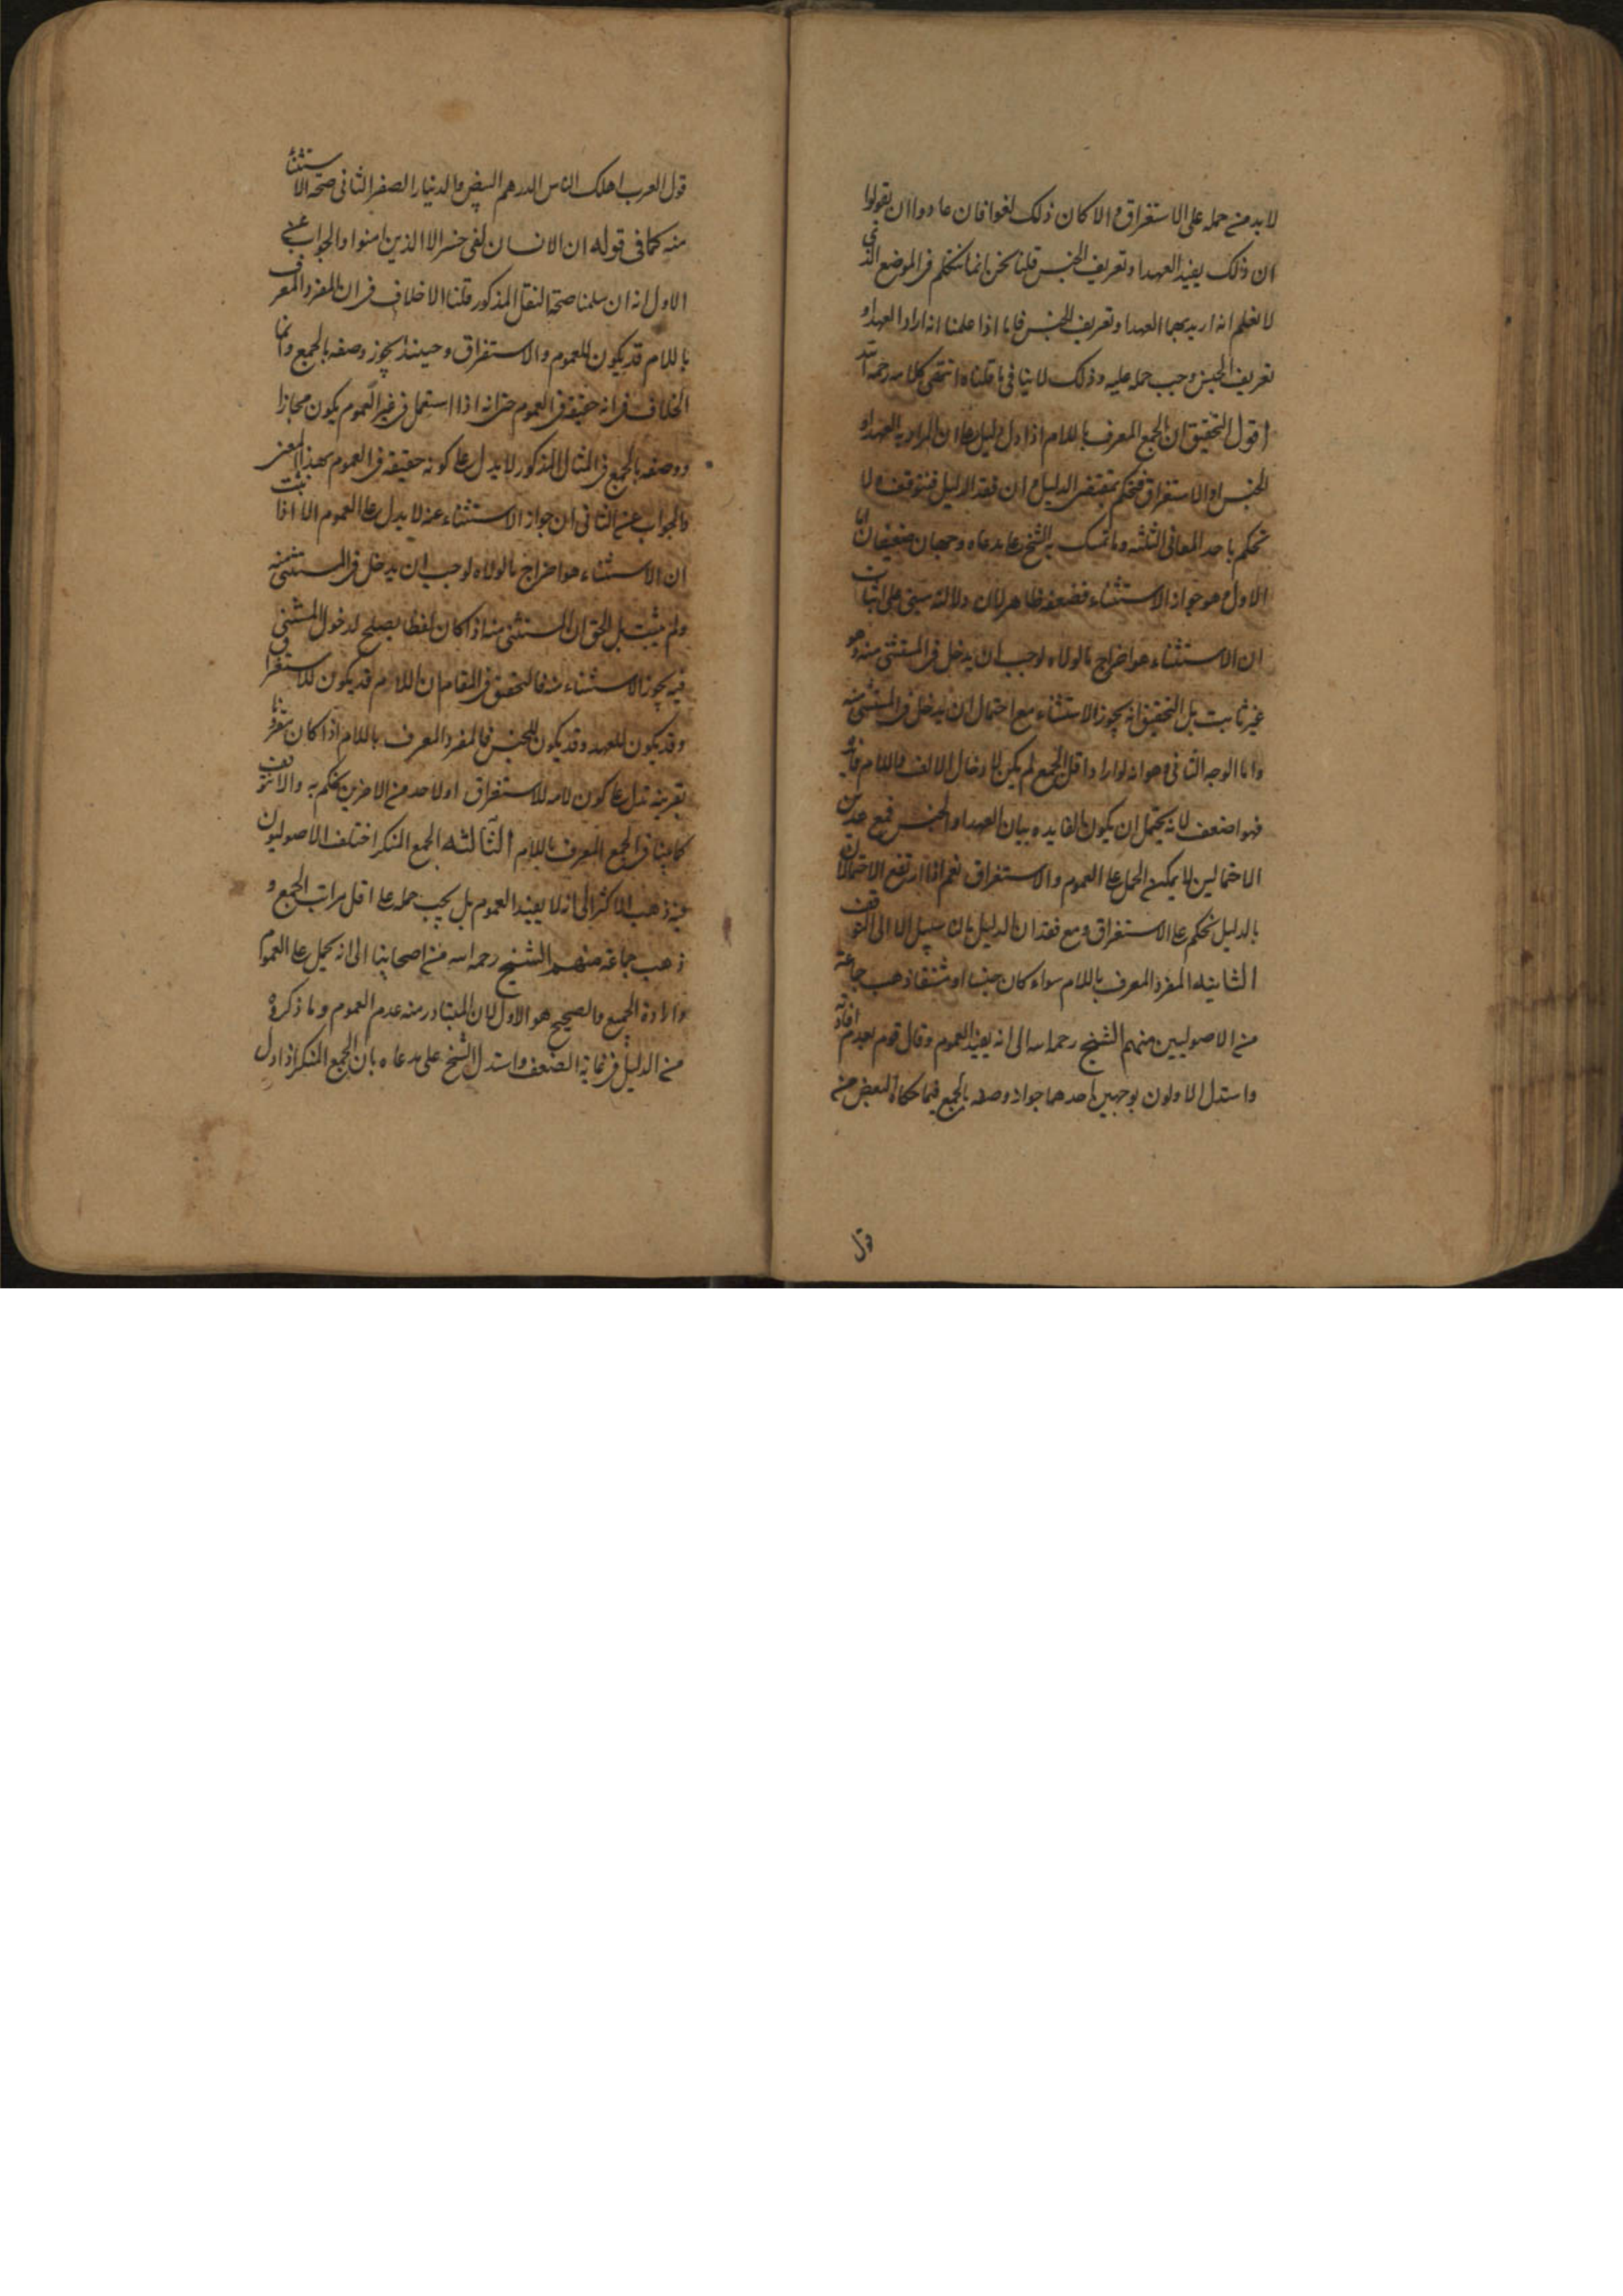 لا بد من حمله على الاستغراق والا كان ذلك لغوا فان عادوا ان يقولوا
ان ذلك يفيد العهد او تعريف الجنس قلنا نحن انما نتكلم فى الموضع الذى
لا نعلم انه اريد بهما العهد او تعريف الجنس فاما اذا علمنا انه اراد العهد او
تعريف الجنس وجب حمله عليه وذلك لا ينافى ما قلناه انتهى كلامه رحمه الله
اقول التحقيق ان الجمع المعرف باللام اذا دل دليل على ان المراد به العهد او
الجنس او الاستغراق فنحكم بمقتضى الدليل وان فقد الدليل فنتوقف ولا
نحكم باحد المعانى الثلثه وما تمسك به الشيخ على مدعاه وجهان ضعيفان اما
الاول وهو جواز الاستثناء فضعفه ظاهر لان دلالته مبنى على اثبات
ان الاستثناء هو اخراج ما لولاه لوجب ان يدخل فى المستثنى منه وهو
غير ثابت بل التحقيق انه يجوز الاستثناء مع احتمال ان يدخل فى المستثنى منه
واما الوجه الثانى وهو انه لو اراد اقل الجمع لم يكن لادخال الالف واللام فائدة
فهو اضعف لانه يحتمل ان يكون الفايده بيان العهد او الجنس فمع هذين
الاحتمالين لا يمكن الحمل على العموم والاستغراق نعم اذا ارتفع الاحتمالان
بالدليل نحكم على الاستغراق ومع فقدان الدليل مالنا سبيل الا الى التوقف
الثانيه المفرد المعرف باللام سواء كان جنسا او مشتقا ذهب جماعة
من الاصوليين منهم الشيخ رحمه الله الى انه يفيد العموم وقال قوم بعدم افادته
واستدل الاولون بوجهين احدهما جواز وصفه بالجمع فيما حكاه البعض من
قول
قول العرب اهلك الناس الدرهم البيض والدينار الصفر الثانى صحة الاستثناء
منه كما فى قوله ان الانسان لفى خسر الا الذين امنوا والجواب عن
الاول انه ان سلمنا صحة النقل المذكور قلنا لا خلاف فى ان المفرد المعرف
باللام قد يكون للعموم والاستغراق وحينئذ يجوز وصفه بالجمع وانما
الخلاف فى انه حقيقه فى العموم حتى انه اذا استعمل فى غير العموم يكون مجازا
ووصفه بالجمع فى المثال المذكور لا يدل على كونه حقيقه فى العموم بهذا المعنى
والجواب عن الثانى ان جواز الاستثناء عنه لا يدل على العموم الا اذا ثبت
ان الاستثناء هو اخراج ما لولاه لوجب ان يدخل فى المستثنى منه
ولم يثبت بل الحق ان المستثنى منه اذا كان لفظا يصلح لدخول المستثنى
فيه يجوز الاستثناء منه فالتحقيق فى المقام ان اللام قد يكون للاستغراق
وقد يكون للعهد وقد يكون للجنس فالمفرد المعرف باللام اذا كان مقرونا
بقرينه تدل على كون لامه للاستغراق او لاحد من الاخرين نحكم به والا نتوقف
كما بينا فى الجمع المعرف باللام الثالثه الجمع المنكر اختلف الاصوليون
فيه ذهب الاكثر الى انه لا يفيد العموم بل يجب حمله على اقل مراتب الجمع و
ذهب جماعة منهم الشيخ رحمه الله من اصحابنا الى انه يحمل على العموم
وارادة الجميع والصحيح هو الاول لان المتبادر منه عدم العموم وما ذكره
من الدليل فى غاية الضعف واستدل الشيخ على مدعاه بان الجمع المنكر اذا دل